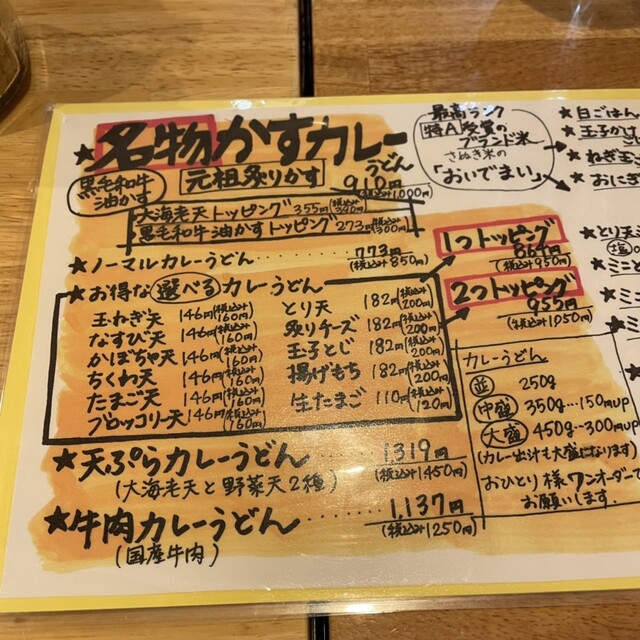 ★名物かすカレーうどん
黒毛和牛油かす
元祖炙りかす
910円
(税込み1,000円)
大海老天トッピング 355円(税込み390円)
黒毛和牛油かすトッピング 273円(税込み300円)
★ノーマルカレーうどん 773円
(税込み850円)
★お得な選べるカレーうどん
玉ねぎ天 146円(税込み160円)
なすび天 146円(税込み160円)
かぼちゃ天 146円(税込み160円)
ちくわ天 146円(税込み160円)
たまご天 146円(税込み160円)
ブロッコリー天 146円(税込み160円)
とり天 182円(税込み200円)
炙りチーズ 182円(税込み200円)
玉子とじ 182円(税込み200円)
揚げもち 182円(税込み200円)
生たまご 110円(税込み120円)
1つトッピング
864円
(税込み950円)
2つトッピング
955円
(税込み1,050円)
★天ぷらカレーうどん……1319円
(大海老天と野菜天2種)
(税込み1450円)
★牛肉カレーうどん……1,137円
(国産牛肉)
(税込み1250円)
最高ランク
特A受賞の
ブランド米
さぬき米の
「おいでまい」
★白ごはん
★玉子かけ
★ねぎ玉
★おにぎ
★とり天
(塩)
★ミニと
★ミニ
★ミニ
カレーうどん
並 250g
中盛 350g…150円up
大盛 450g…300円up
(カレー出汁も大盛になります)
おひとり様ワンオーダーで
お願いします。